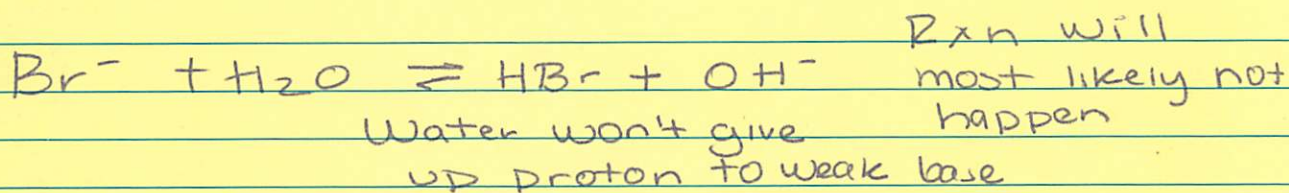 Br⁻ + H₂O ⇌ HBr + OH⁻
Rxn will
most likely not
happen
Water won't give
up proton to weak base